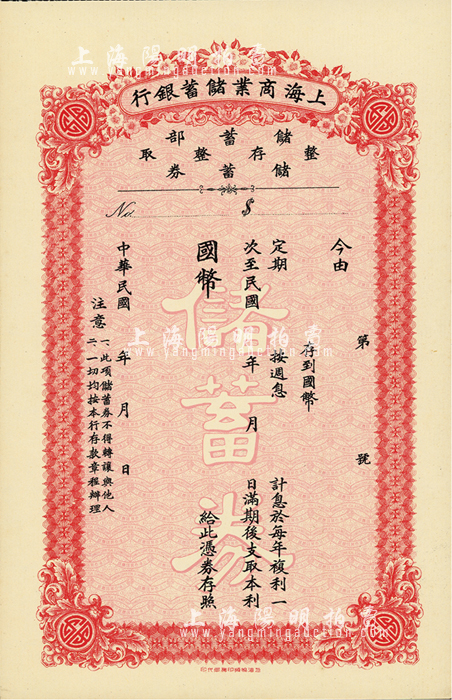 上海陽明拍賣
www.yangmingauction.com
上海商業儲蓄銀行
儲蓄部
整存整取
儲蓄券
No. $
第 號
今由
存到國幣
定期 按週息 計息於每年複利一
次至民國 年 月 日滿期後支取本利
國幣
給此憑券存照
中華民國 年 月 日
注意
一、此項儲蓄券不得轉讓與他人
二、一切均按本行存款章程辦理
儲蓄券
上海陽明拍賣
www.yangmingauction.com
上海陽明拍賣
www.yangmingauction.com